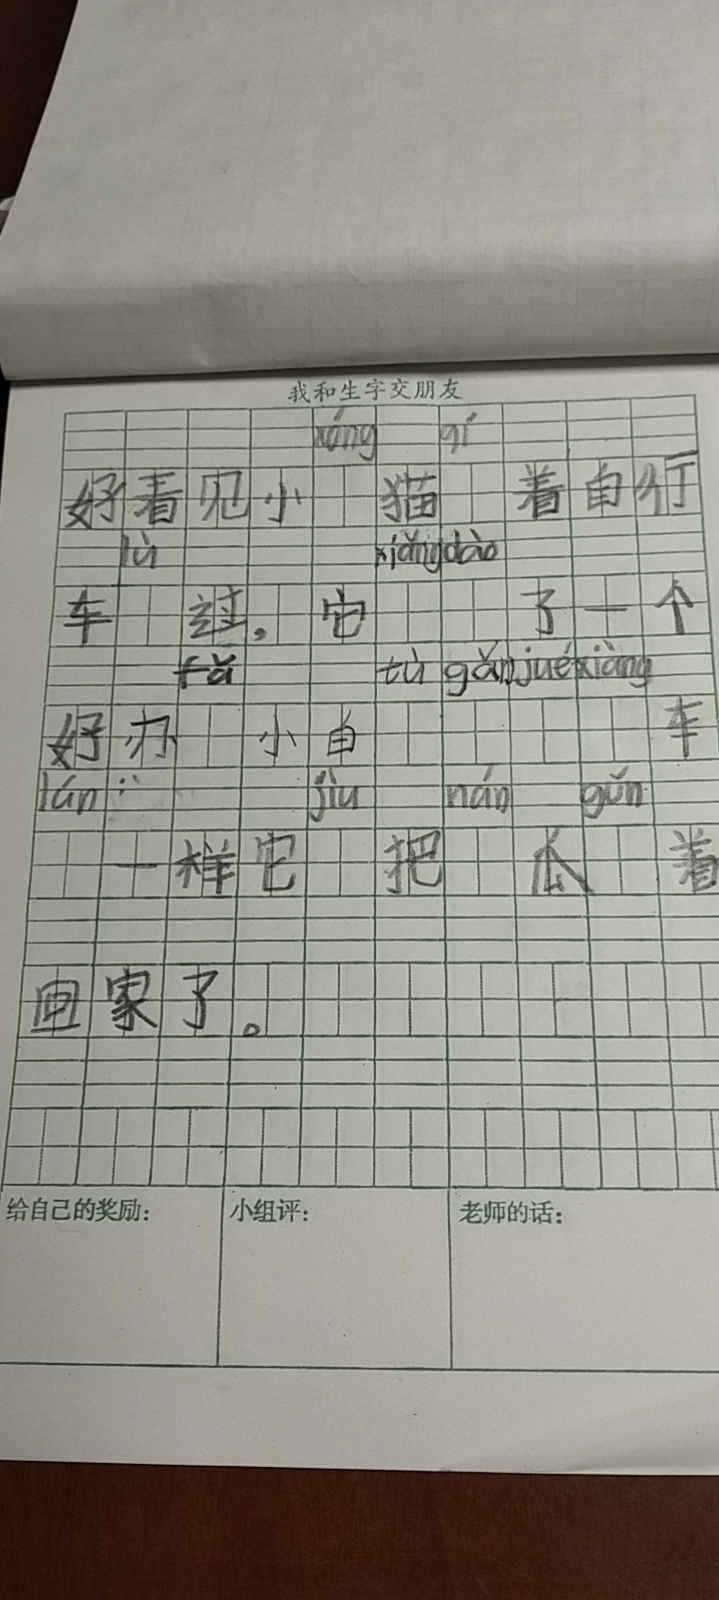 我和生字交朋友
xóng qí
好看见小 猫 着自行
lù xiǎng dào
车 过，它 了一个
fǎ tù gǎn jué xiàng
好办 小自 车
lún jìu nán gǔn
一样它 把 瓜 着
回家了。
给自己的奖励： 小组评： 老师的话：